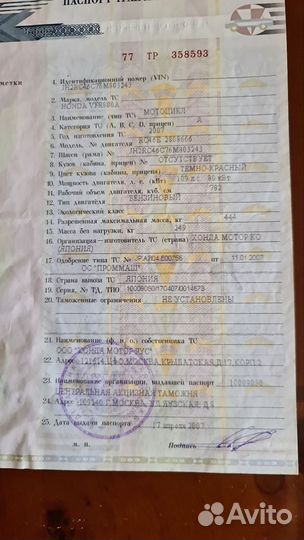 ПАСПОРТ
77 ТР 358593
метки
1. Идентификационный номер (VIN)
JH2RC46C76M803243
2. Марка, модель ТС
HONDA VFR800A
3. Наименование (тип ТС) МОТОЦИКЛ
4. Категория ТС (A, B, C, D, прицеп) A
5. Год изготовления ТС 2007
6. Модель, № двигателя RC46E
7. Шасси (рама) № JH2RC46C76M803243
8. Кузов (кабина, прицеп) № ОТСУТСТВУЕТ
9. Цвет кузова (кабины, прицепа) ТЕМНО-КРАСНЫЙ
10. Мощность двигателя, л. с. (кВт) 109 л.с. 80 кВт
11. Рабочий объем двигателя, куб. см 782
12. Тип двигателя БЕНЗИНОВЫЙ
13. Экологический класс
14. Разрешенная максимальная масса, кг 444
15. Масса без нагрузки, кг 249
16. Организация – изготовитель ТС (страна) ХОНДА МОТОР КО
(ЯПОНИЯ)
17. Одобрение типа ТС № 11.01.2007
ОС "ПРОММАШ"
18. Страна вывоза ТС ЯПОНИЯ
19. Серия, № ТД, ТПО
20. Таможенные ограничения НЕ УСТАНОВЛЕНЫ
21. Наименование (ф. и. о.) собственника ТС
ООО "ХОНДА МОТОР РУС"
22. Адрес 121614, Г. МОСКВА, КРЫЛАТСКАЯ, Д.17, КОРП.2
23. Наименование организации, выдавшей паспорт 10009000
ЦЕНТРАЛЬНАЯ АКЦИЗНАЯ ТАМОЖНЯ
24. Адрес 109240 Г. МОСКВА, УЛ. ЯУЗСКАЯ, Д.8
25. Дата выдачи паспорта 17 апреля 2007
М. П. Подпись
Avito